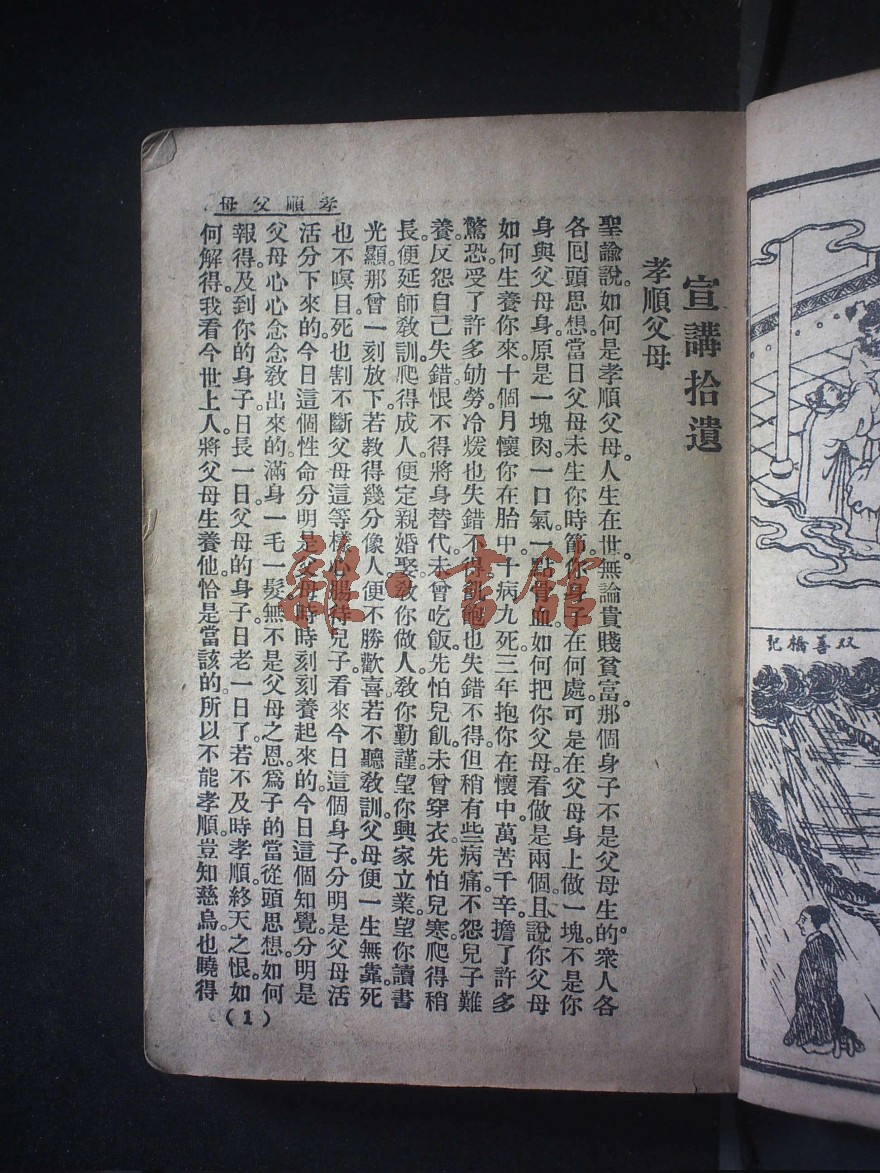 宣講拾遺
孝順父母
聖諭說。如何是孝順父母。人生在世。無論貴賤貧富。那個身子不是父母生的。衆人各
各囘頭思想。當日父母未生你時節。你身子在何處。可是在父母身上做一塊。不是你
身與父母身。原是一塊肉。一口氣。一點骨血。如何把你父母。看做是兩個。且說你父母
如何生養你來。十個月懷你在胎中。十病九死。三年抱你在懷中。萬苦千辛。擔了許多
驚恐。受了許多劬勞。冷煖也失錯不得。飢飽也失錯不得。但稍有些病痛。不怨兒子難
養。反怨自己失錯。恨不得將身替代。未曾吃飯。先怕兒飢。未曾穿衣。先怕兒寒。爬得稍
長。便延師敎訓。爬得成人。便定親婚娶。敎你做人。敎你勤謹。望你興家立業。望你讀書
光顯。那曾一刻放下。若敎得幾分像人。便不勝歡喜。若不聽敎訓。父母便一生無靠。死
也不瞑目。死也割不斷。父母這等樣心腸待兒子。看來今日這個身子。分明是父母活
活分下來的。今日這個性命。分明是父母時時刻刻養起來的。今日這個知覺。分明是
父母心心念念敎出來的。滿身一毛一髮。無不是父母之恩。爲子的當從頭思想。如何
報得。及到你的身子日長一日。父母的身子日老一日了。若不及時孝順。終天之恨。如
何解得。我看今世上人。將父母生養他。恰是當該的。所以不能孝順。豈知慈烏也曉得
孝順父母
(1)
雜·書館
双善橋記